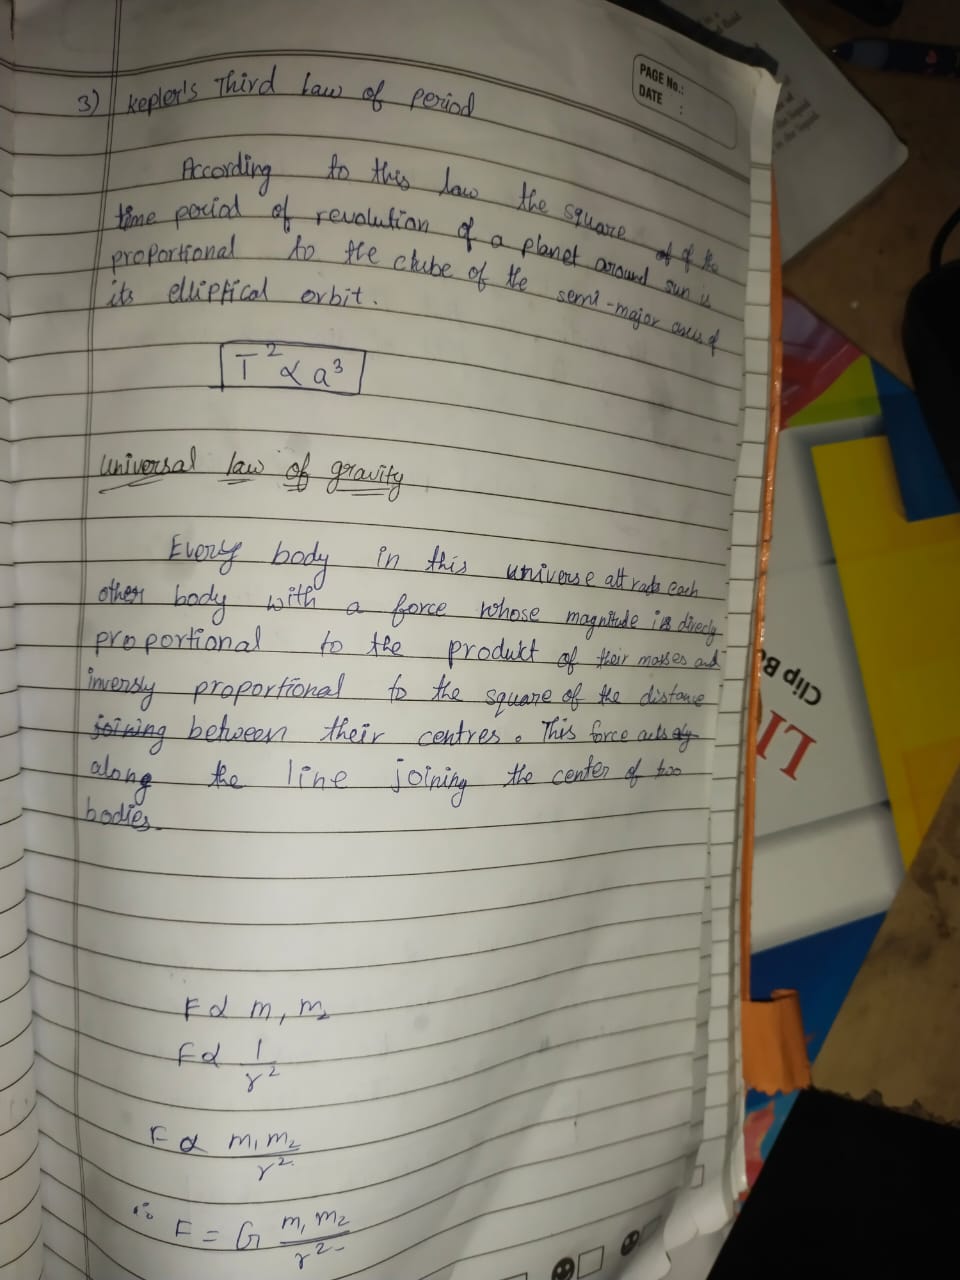 PAGE No.:
DATE :
3) Kepler's Third Law of Period
According to this law the square of of the
time period of revolution of a planet around sun is
proportional to the cbube of the semi-major axes of
its elliptical orbit.
T² ∝ a³
Universal law of gravity
Every body in this universe attracts each
other body with a force whose magnitude is directly
proportional to the product of their masses and
inversly proportional to the square of the distance
joining between their centres. This force acts
along the line joining the center of two
bodies.
F ∝ m₁ m₂
F ∝ 1/r²
F ∝ m₁ m₂/r²
∴ F = G m₁ m₂/r²
Clip Bo